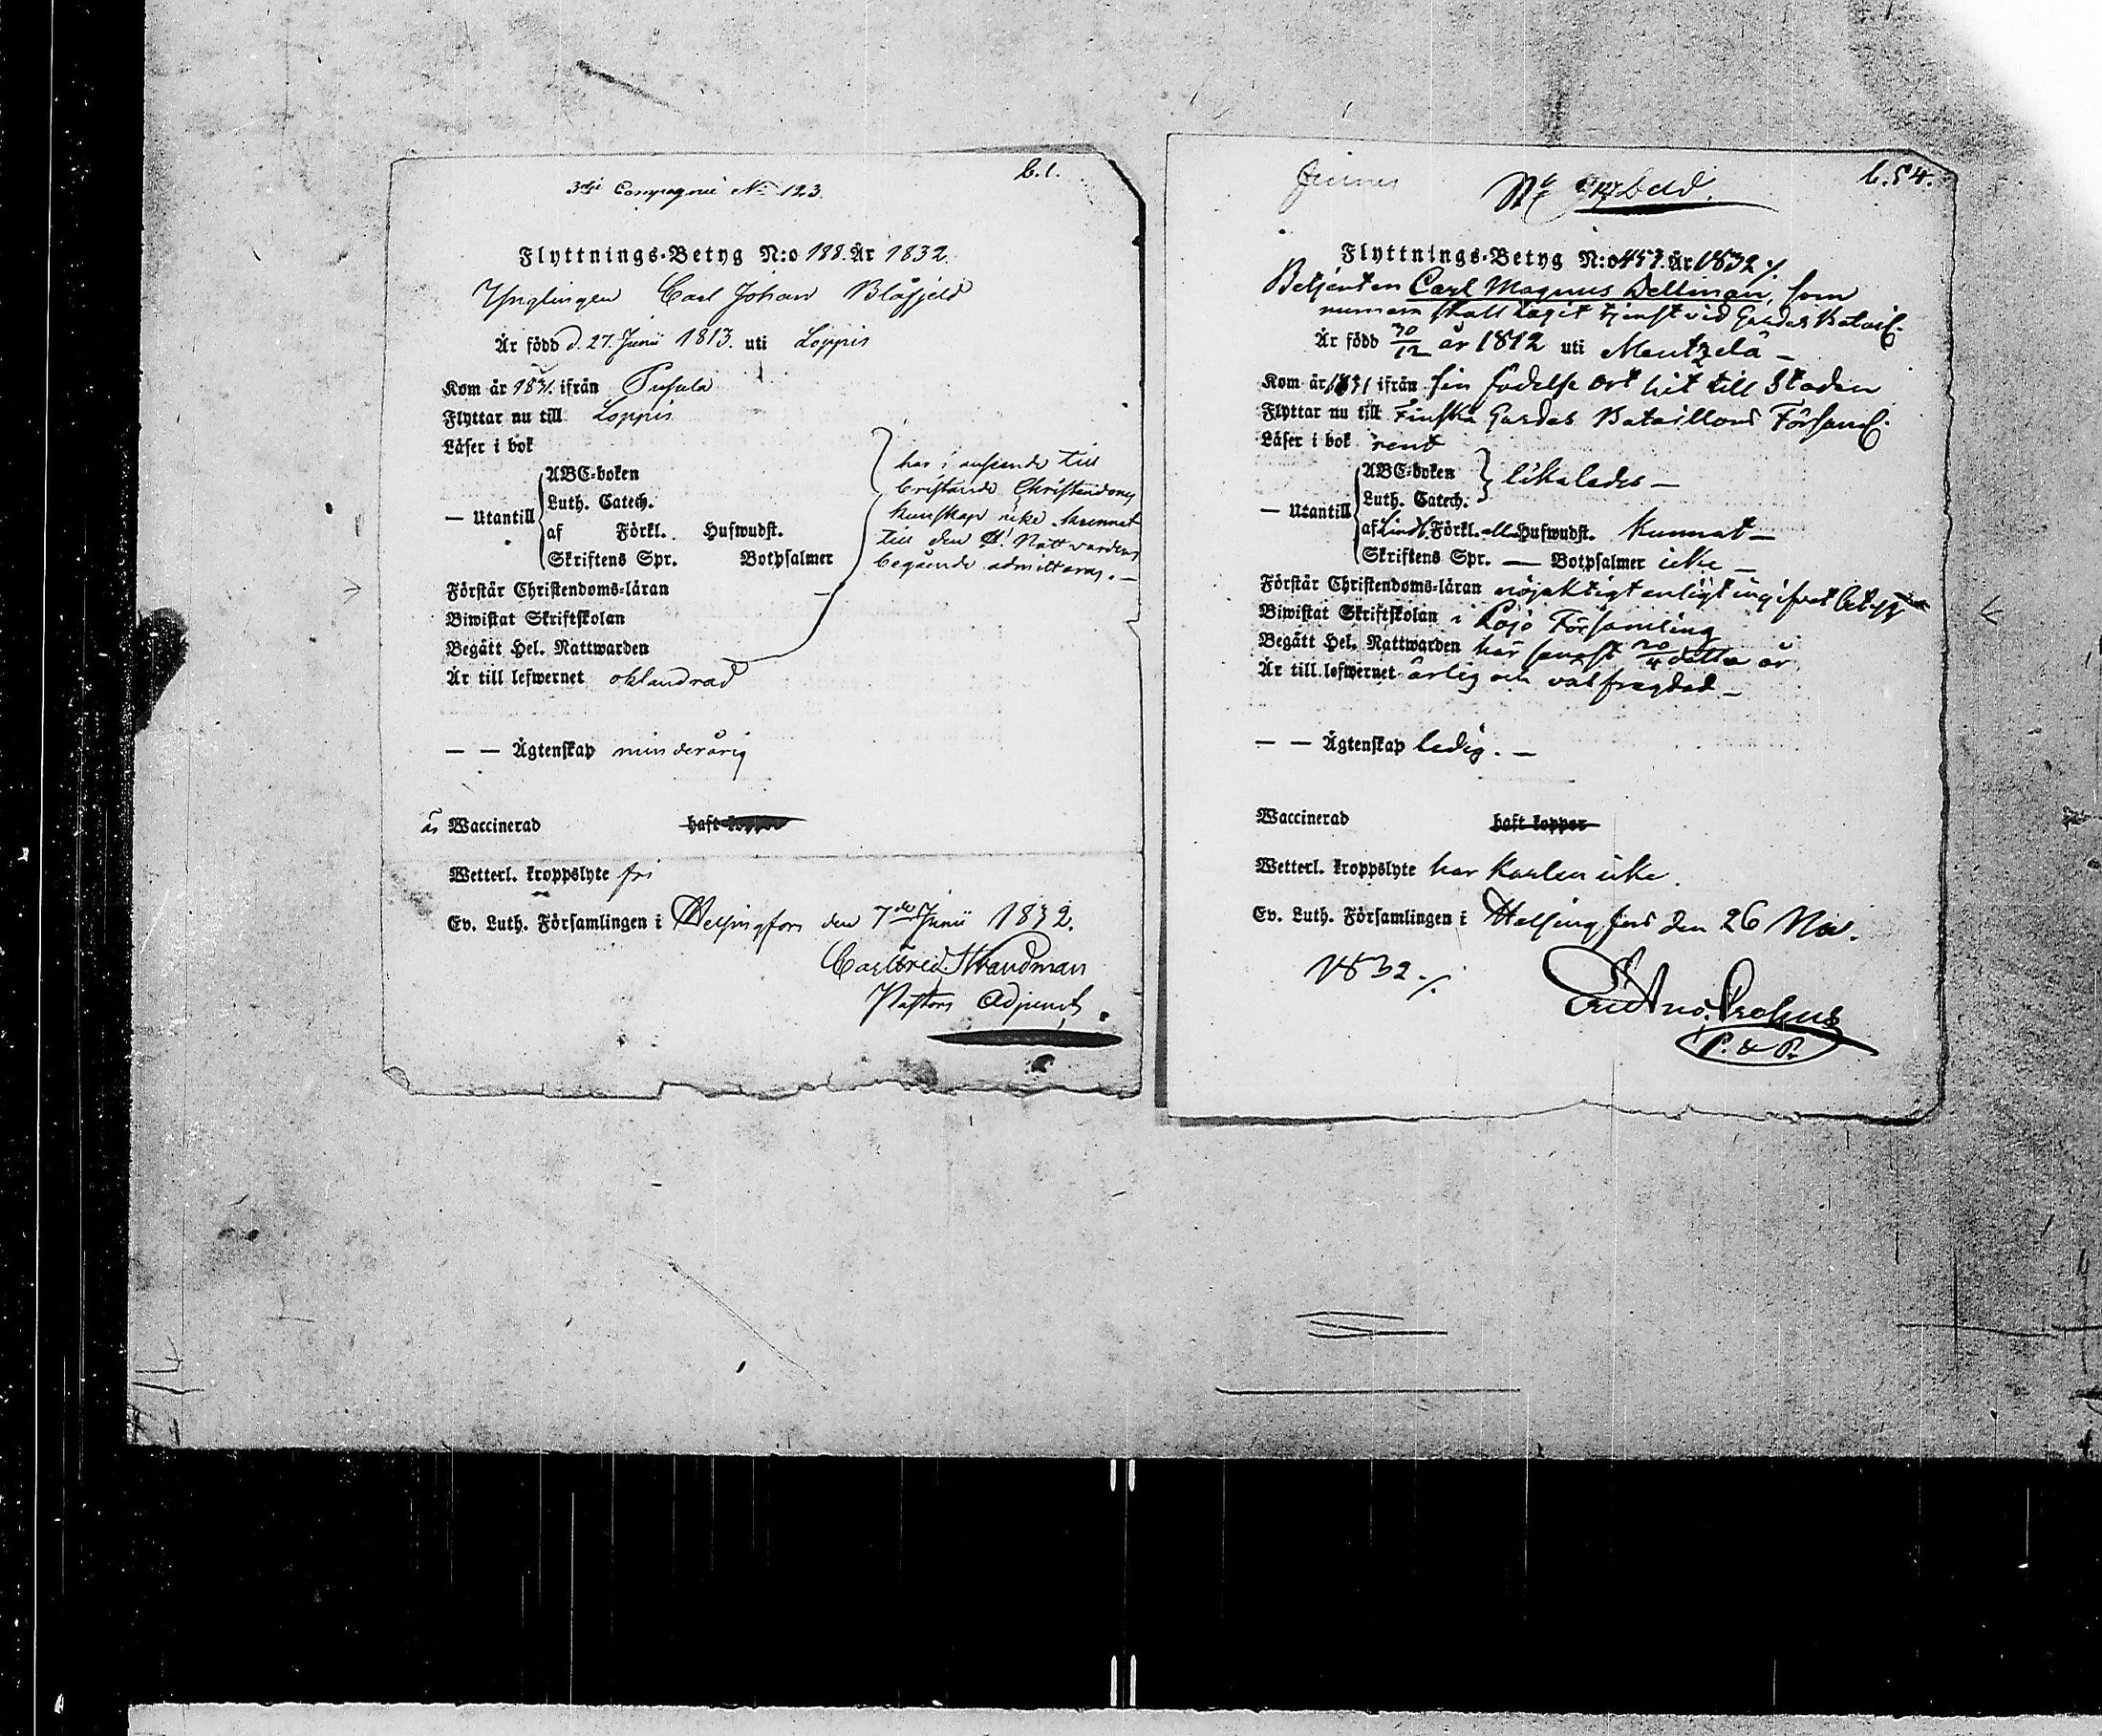 b.1.
3dje Compagnie No 123.
Flyttnings-Betyg N:o 188. År 1832.
Ynglingen Carl Johan Blåfjeld
Är född d. 27. Junii 1813. uti Loppis
Kom år 1831. ifrån Pusula
Flyttar nu till Loppis
Läser i bok
— Utantill
ABC-boken
Luth. Catech.
af Förkl. Huswudst.
Skriftens Spr. Botpsalmer
har i anseende till
bristande Christendoms
kunskap icke kunnat
till den H. Nattvardens
begående admitteras. —
Förstår Christendoms-läran
Biwistat Skriftskolan
Begått Hel. Nattwarden
Är till lefwernet oklandrad
— — Ägtenskap minderårig
är Waccinerad haft koppor
Wetterl. kroppslyte fri
Ev. Luth. Församlingen i Helsingfors den 7de Junii 1832.
Carl Fred. Strandman
Pastors Adjunct.
b.54.
Flyttnings-Betyg N:o 457. År 1832 ./.
Betjenten Carl Magnus Dellman, som
numera skall tagit tjenst vid Gardes Bataill.
Är född 30/12 år 1812 uti Mentzelä —
Kom år 1831 ifrån sin födelse ort hit till Staden
Flyttar nu till Finska Gardes Bataillons Församl.
Läser i bok rent
— Utantill
ABC-boken
Luth. Catech.
likaledes —
af Lindh. Förkl. alla Huswudst. kunnat —
Skriftens Spr. — Botpsalmer icke —
Förstår Christendoms-läran nöjaktigt enligt ingifvet betyg
Biwistat Skriftskolan i Lojo Församling
Begått Hel. Nattwarden har senast 20/4 detta år
Är till lefwernet ärlig och välfrägdad —
— — Ägtenskap ledig. —
Waccinerad haft koppor
Wetterl. kroppslyte har karlen icke.
Ev. Luth. Församlingen i Helsingfors den 26 Nov.
1832. ./.
P. & P.